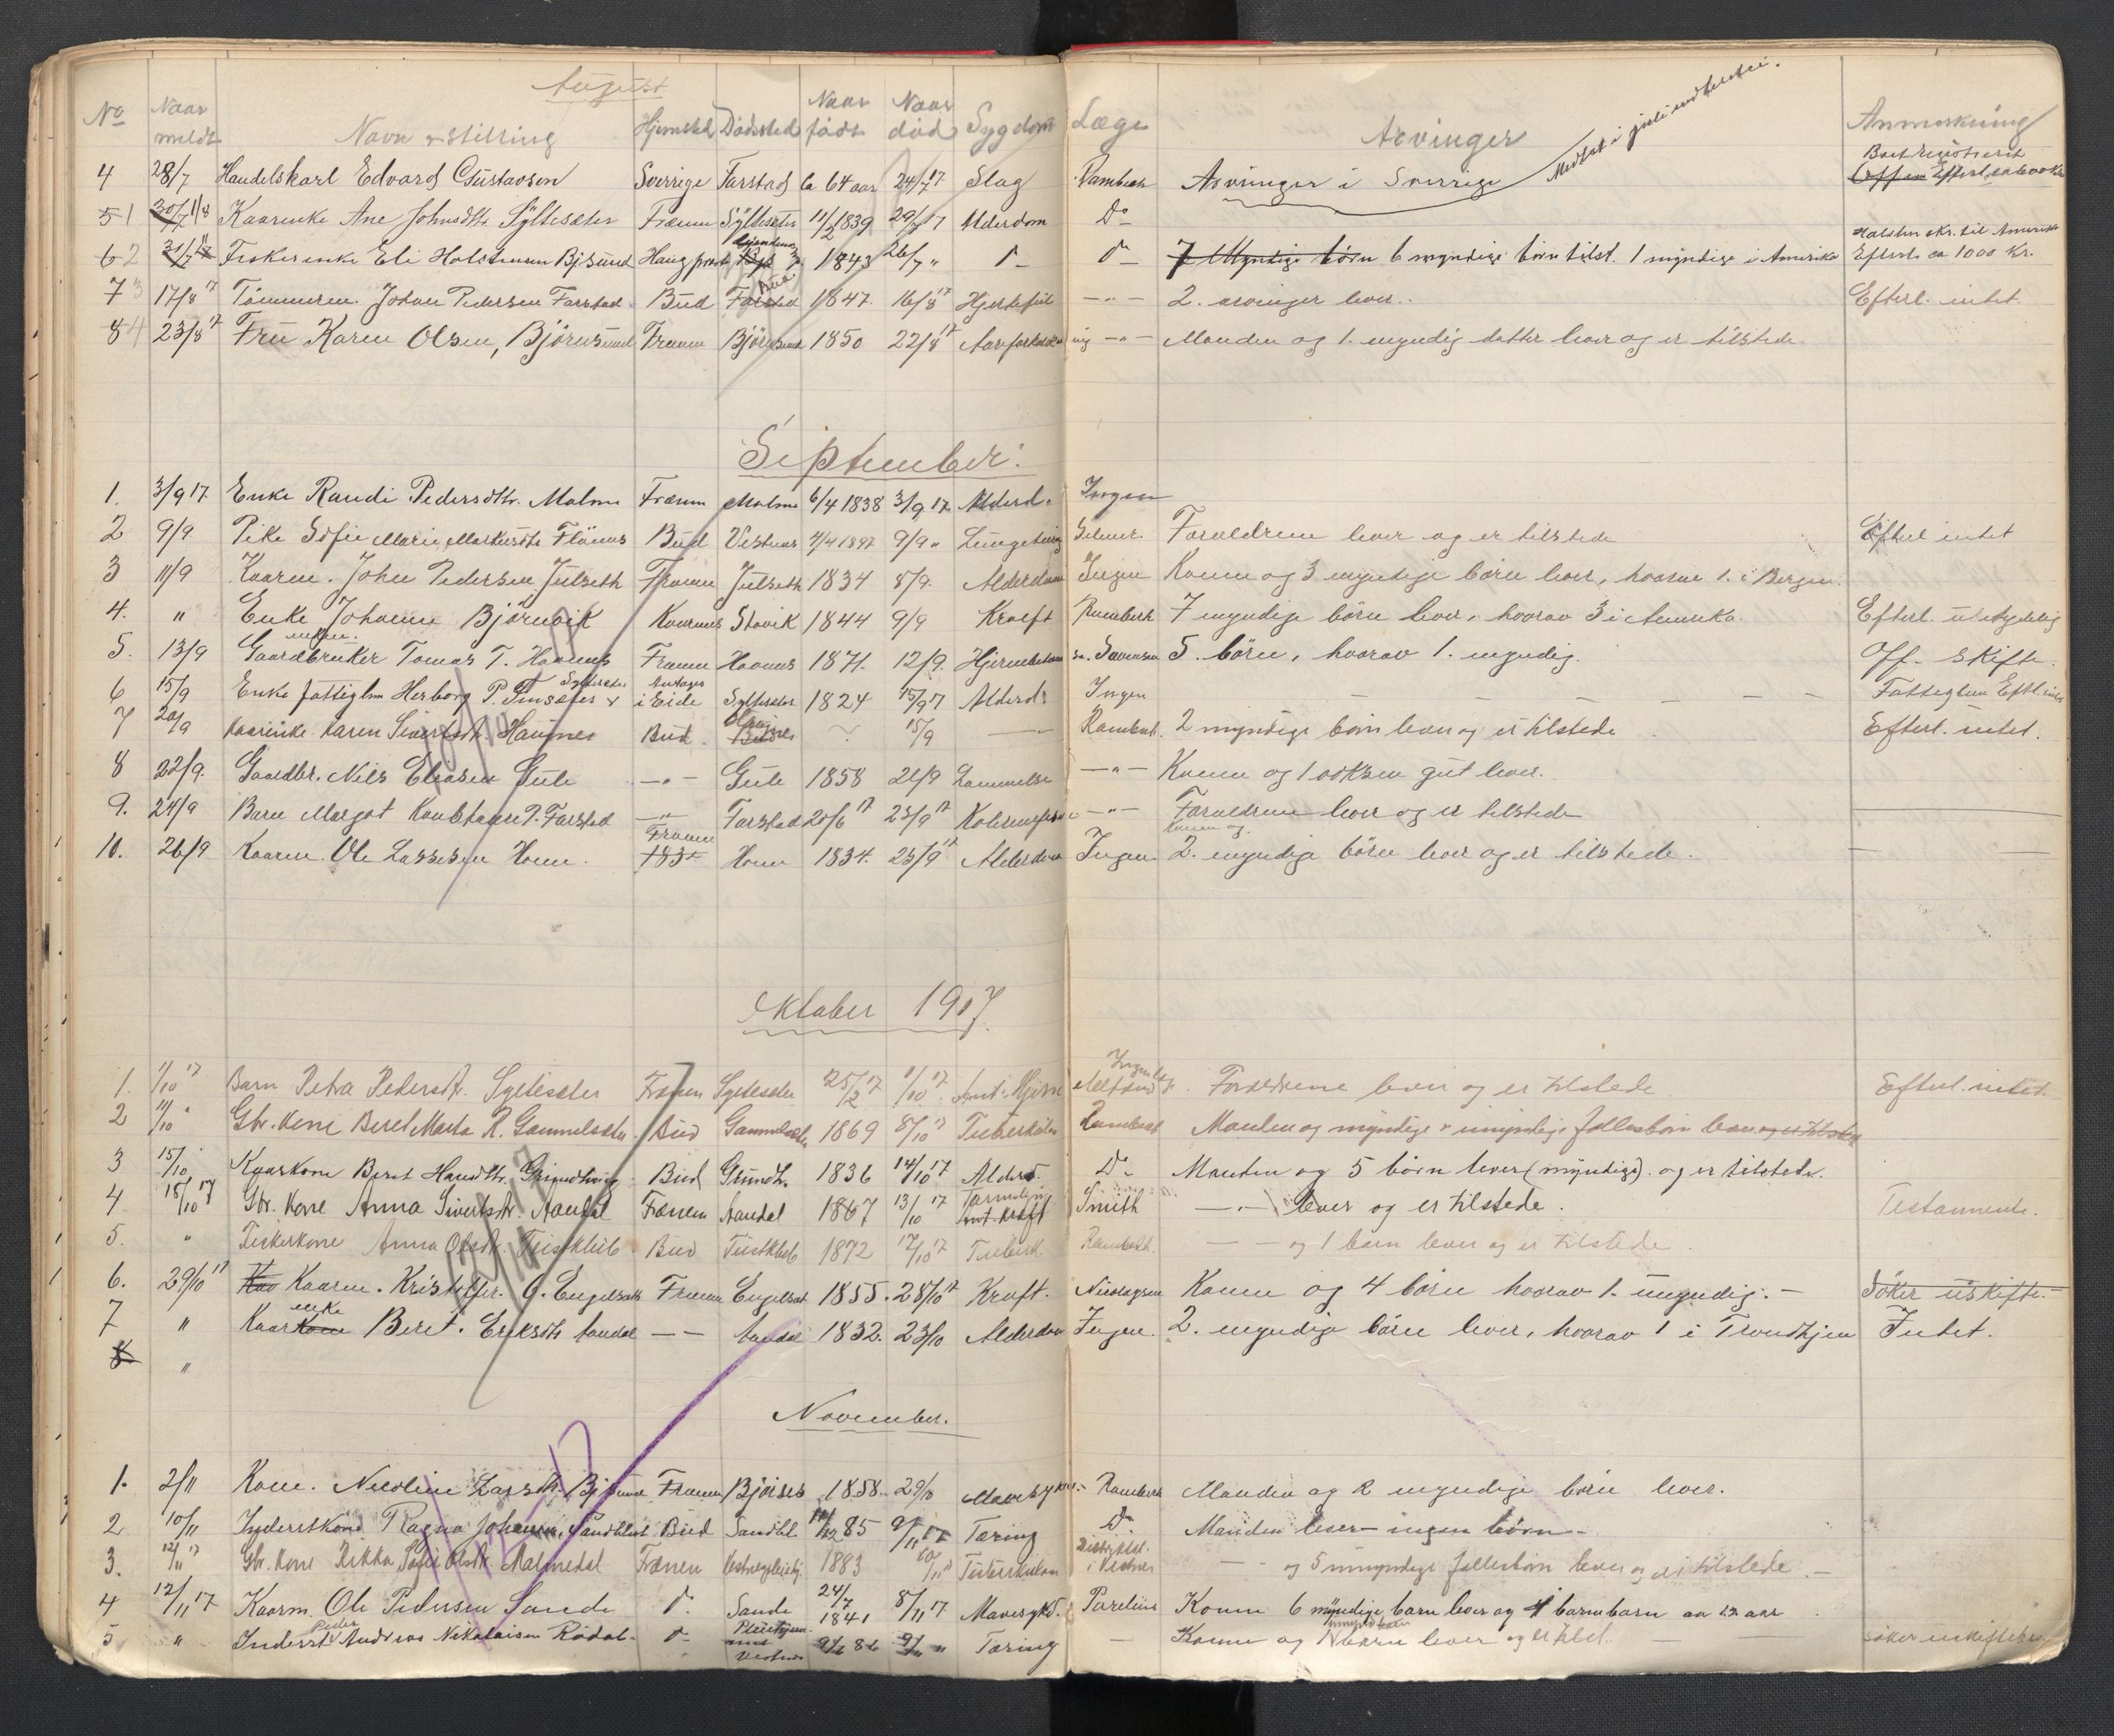 August
No Naar meldt Navn & stilling Hjemsted Dödssted Naar födt Naar död Sygdom Læge Arvinger Anmerkning
4 28/7 Handelskarl Edvard Gustavson Sverrige Farstad Ca 64 aar 24/7 17 Slag Rambech Arvinger i Sverrige Meldt i juli indberetn.
5 1 30/7 1/8 Kaarenke Ane Johnsdtr. Syltesæter Frænen Syltesæter 11/2 1839 29/7 17 Alderdom Do
6 2 31/7 17 Fiskerenke Eli Holstensen Bjsund 1843 26/7 " D- D- 7 Myndige börn 6 myndige börn tilst. 1 myndige i Amerika Efterl. ca 1000 Kr.
7 3 17/8 17 Tömmerm. Johan Pedersen Farstad Bud Farstad Bud 1847. 16/8 17 Hjertefeil -"- 2. arvinger lever. Efterl. intet.
8 4 23/8 17 Fru Karen Olsen, Björnsund Frænen Björnsund 1850 22/8 17 Aarforkalkning -"- Manden og 1. myndig datter lever og er tilstede.
September.
1. 3/9 17. Enke Randi Pedersdtr. Malme Frænen Malme 6/4 1838 3/9 17. Alderd. Ingen
2 9/9 Pike Sofie Marie Markusdtr Flönes Bud Vestnes 4/4 1897 9/9 " Lungetæring Forældrene lever og er tilstede Efterl intet
3 11/9 Kaarm. John Pedersen Julseth Frænen Julseth 1834 8/9. Alderdom Ingen Konen og 3 myndige börn lever, hvorav 1. i Bergen.
4. " Enke Johanne Björnvik Kvernes Stavik 1844 9/9 Kræft Rambech 7 myndige börn lever, hvorav 3 i Amerika. Efterl. ubetydelig
5. 13/9 Gaardbruker Tomas T. Haanes Frænen Haanes 1871. 12/9. Sörensen 5. börn, hvorav 1. myndig. Off. skifte.
6 15/9 Enke fattiglem Herborg P. Syltesæter i Eide Syltesæter 1824 15/9 17 Alderd. Ingen — — — — — Fattiglem Eftl. intet
7 20/9 Kaarenke Karen Sivertsdtr. Haugnes Bud. Bud 15/9 — Rambech. 2 myndige börn lever og er tilstede Efterl. intet.
8 22/9. Gaardbr. Nils Eliasen Gule -"- Gule 1858 21/9 Lammelse -"- Konen og 1 voksen gut lever.
9. 24/9 Barn Margot P. Farstad -"- Farstad 20/6 17 23/9 17 -"- Forældrene lever og er tilstede
10. 26/9 Kaarm. Ole Lassesen Hoem. Frænen 1834 Hoem 1834. 25/9 17 Alderdom Ingen. konen og 2. myndige börn lever og er tilstede.
Oktober 1917.
1. 1/10 17 Barn Petra Pedersdtr. Syltesæter Frænen Syltesæter 25/2 17 1/10 17 Forældrene lever og er tilstede Efterl. intet.
2 11/10 " Gbr. kone Beret Marta R. Gammelsæter. Bud Gammelsæter 1869 8/10 17 Tuberkulose Rambech Manden og myndige & umyndige fællesbörn lever og er tilstede
3 15/10 Kaarkone Beret Hansdtr. Grindhaug Bud Grindh. 1836 14/10 17 Alderd. Do Manden og 5 börn lever (myndige). og er tilstede.
4 18/10 17 Gbr. kone Anna Sivertsdtr. Aandal Frænen Aandal 1867 13/10 17 Smith -"- lever og er tilstede. Testamente.
5. " Fiskerkone Anna Olsdtr. Tustklub Bud Tustklub 1872 17/10 17 Tuberk. Rambech. — og 1 barn lever og er tilstede.
6. 29/10 17 Kaarm. Kristoffer. O. Engelsæt Frænen Engelsæt 1855. 28/10 17 Kræft. Nicolaysen Konen og 4 börn hvorav 1. umyndig. — Söker uskifte. —
7 " Kaarkone enke Beret. Eriksdtr Aandal — Aandal 1832. 23/10 Alderdom Ingen. 2. myndige börn lever, hvorav 1 i Trondhjem Intet.
8 "
November.
1. 2/11 Kone. Nicoline Larsdtr. Bjsund Frænen 1858. 29/10 Mavesyke Rambech Manden og 2 myndige börn lever.
2 10/11 Inderstkone Ragna Bud Sandbl. 85 9/11 17 Tæring Do Manden lever — ingen börn —
3. 12/11 17 Gbr. kone Rikka Sofie Olsdtr. Malmedal Frænen 1883 10/11 " Tuberkulose Distriktsl. i Vestnes — og 5 umyndige fællesbörn lever og er tilstede. —
4 12/11 17 Kaarm. Ole Pedersen Sande D. Sande 24/7 1841 8/11 17 Mavesykd. Parelius Konen 6 myndige barn lever og 4 barnebarn
5 " Inderst Peder Andreas Nikolaisen Rödal. D- Pleiehjem. ved Vestnes 86 9/11 " Tæring — Konen og 1 umyndig barn lever og er tilst. — söker uskifte